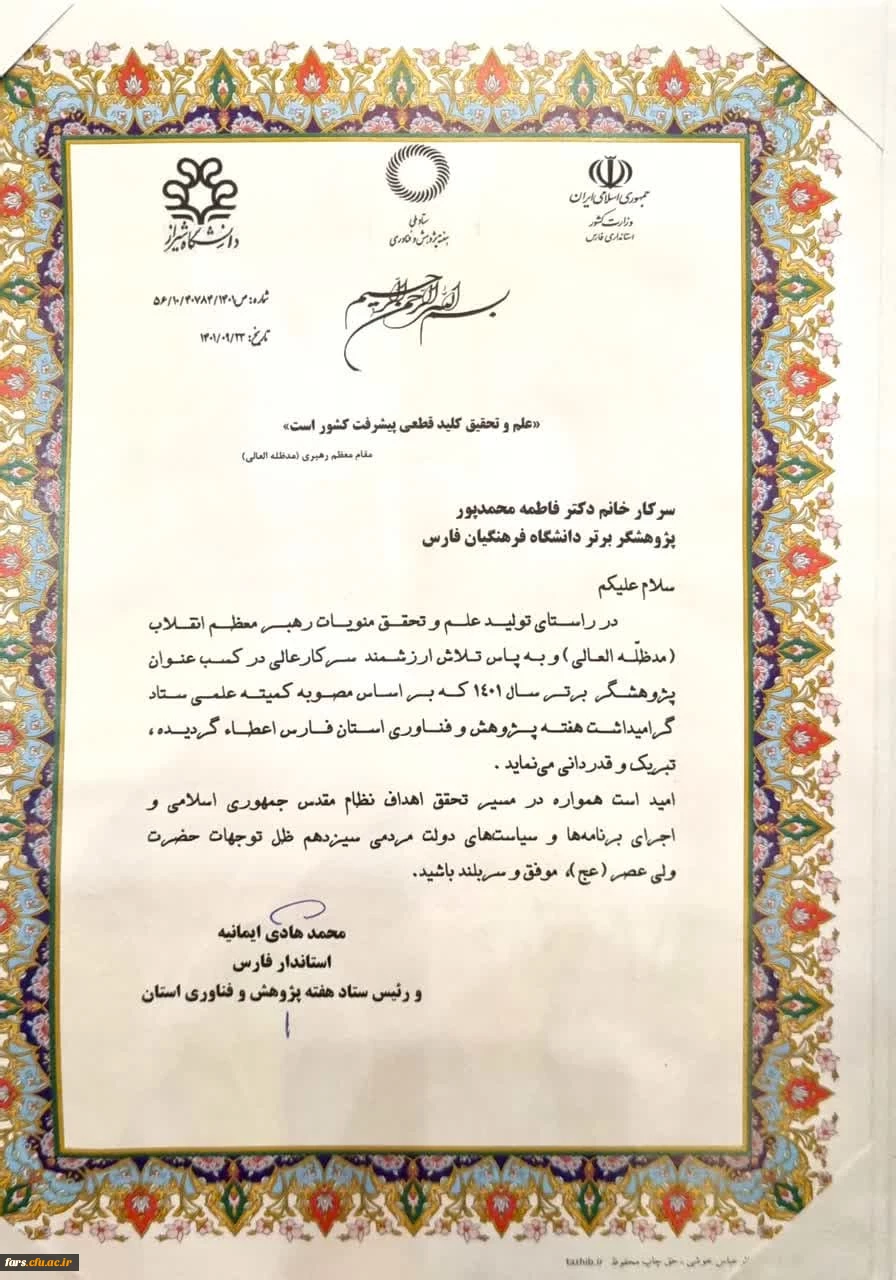 جمهوری اسلامی ایران
وزارت کشور
استانداری فارس
ستاد ملی
هفته پژوهش و فناوری
دانشگاه شیراز
بسم الله الرحمن الرحیم
شماره: ص/۱۴۰۱/۵۶/۱۰/۴۰۷۸۴
تاریخ: ۱۴۰۱/۰۹/۲۳
«علم و تحقیق کلید قطعی پیشرفت کشور است»
مقام معظم رهبری (مدظله العالی)
سرکار خانم دکتر فاطمه محمدپور
پژوهشگر برتر دانشگاه فرهنگیان فارس
سلام علیکم
در راستای تولید علم و تحقق منویات رهبر معظم انقلاب
(مدظلّه العالی) و به پاس تلاش ارزشمند سرکارعالی در کسب عنوان
پژوهشگر برتر سال ۱۴۰۱ که بر اساس مصوبه کمیته علمی ستاد
گرامیداشت هفته پژوهش و فناوری استان فارس اعطاء گردیده،
تبریک و قدردانی می‌نماید .
امید است همواره در مسیر تحقق اهداف نظام مقدس جمهوری اسلامی و
اجرای برنامه‌ها و سیاست‌های دولت مردمی سیزدهم ظل توجهات حضرت
ولی عصر (عج)، موفق و سربلند باشید.
محمد هادی ایمانیه
استاندار فارس
و رئیس ستاد هفته پژوهش و فناوری استان
عباس خوشی ، حق چاپ محفوظ tazhib.ir
fars.cfu.ac.ir